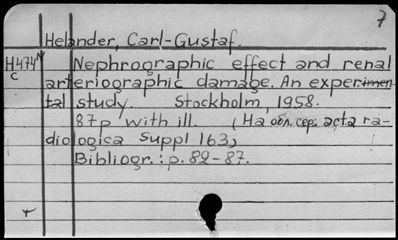 7
Helander, Carl-Gustaf.
H474 Nephrographic effect and renal
c arteriographic damage. An experimen-
tal study. Stockholm, 1958.
87p with ill. (На обл. сер: acta ra-
diologica Suppl 163)
Bibliogr.: p. 82-87.